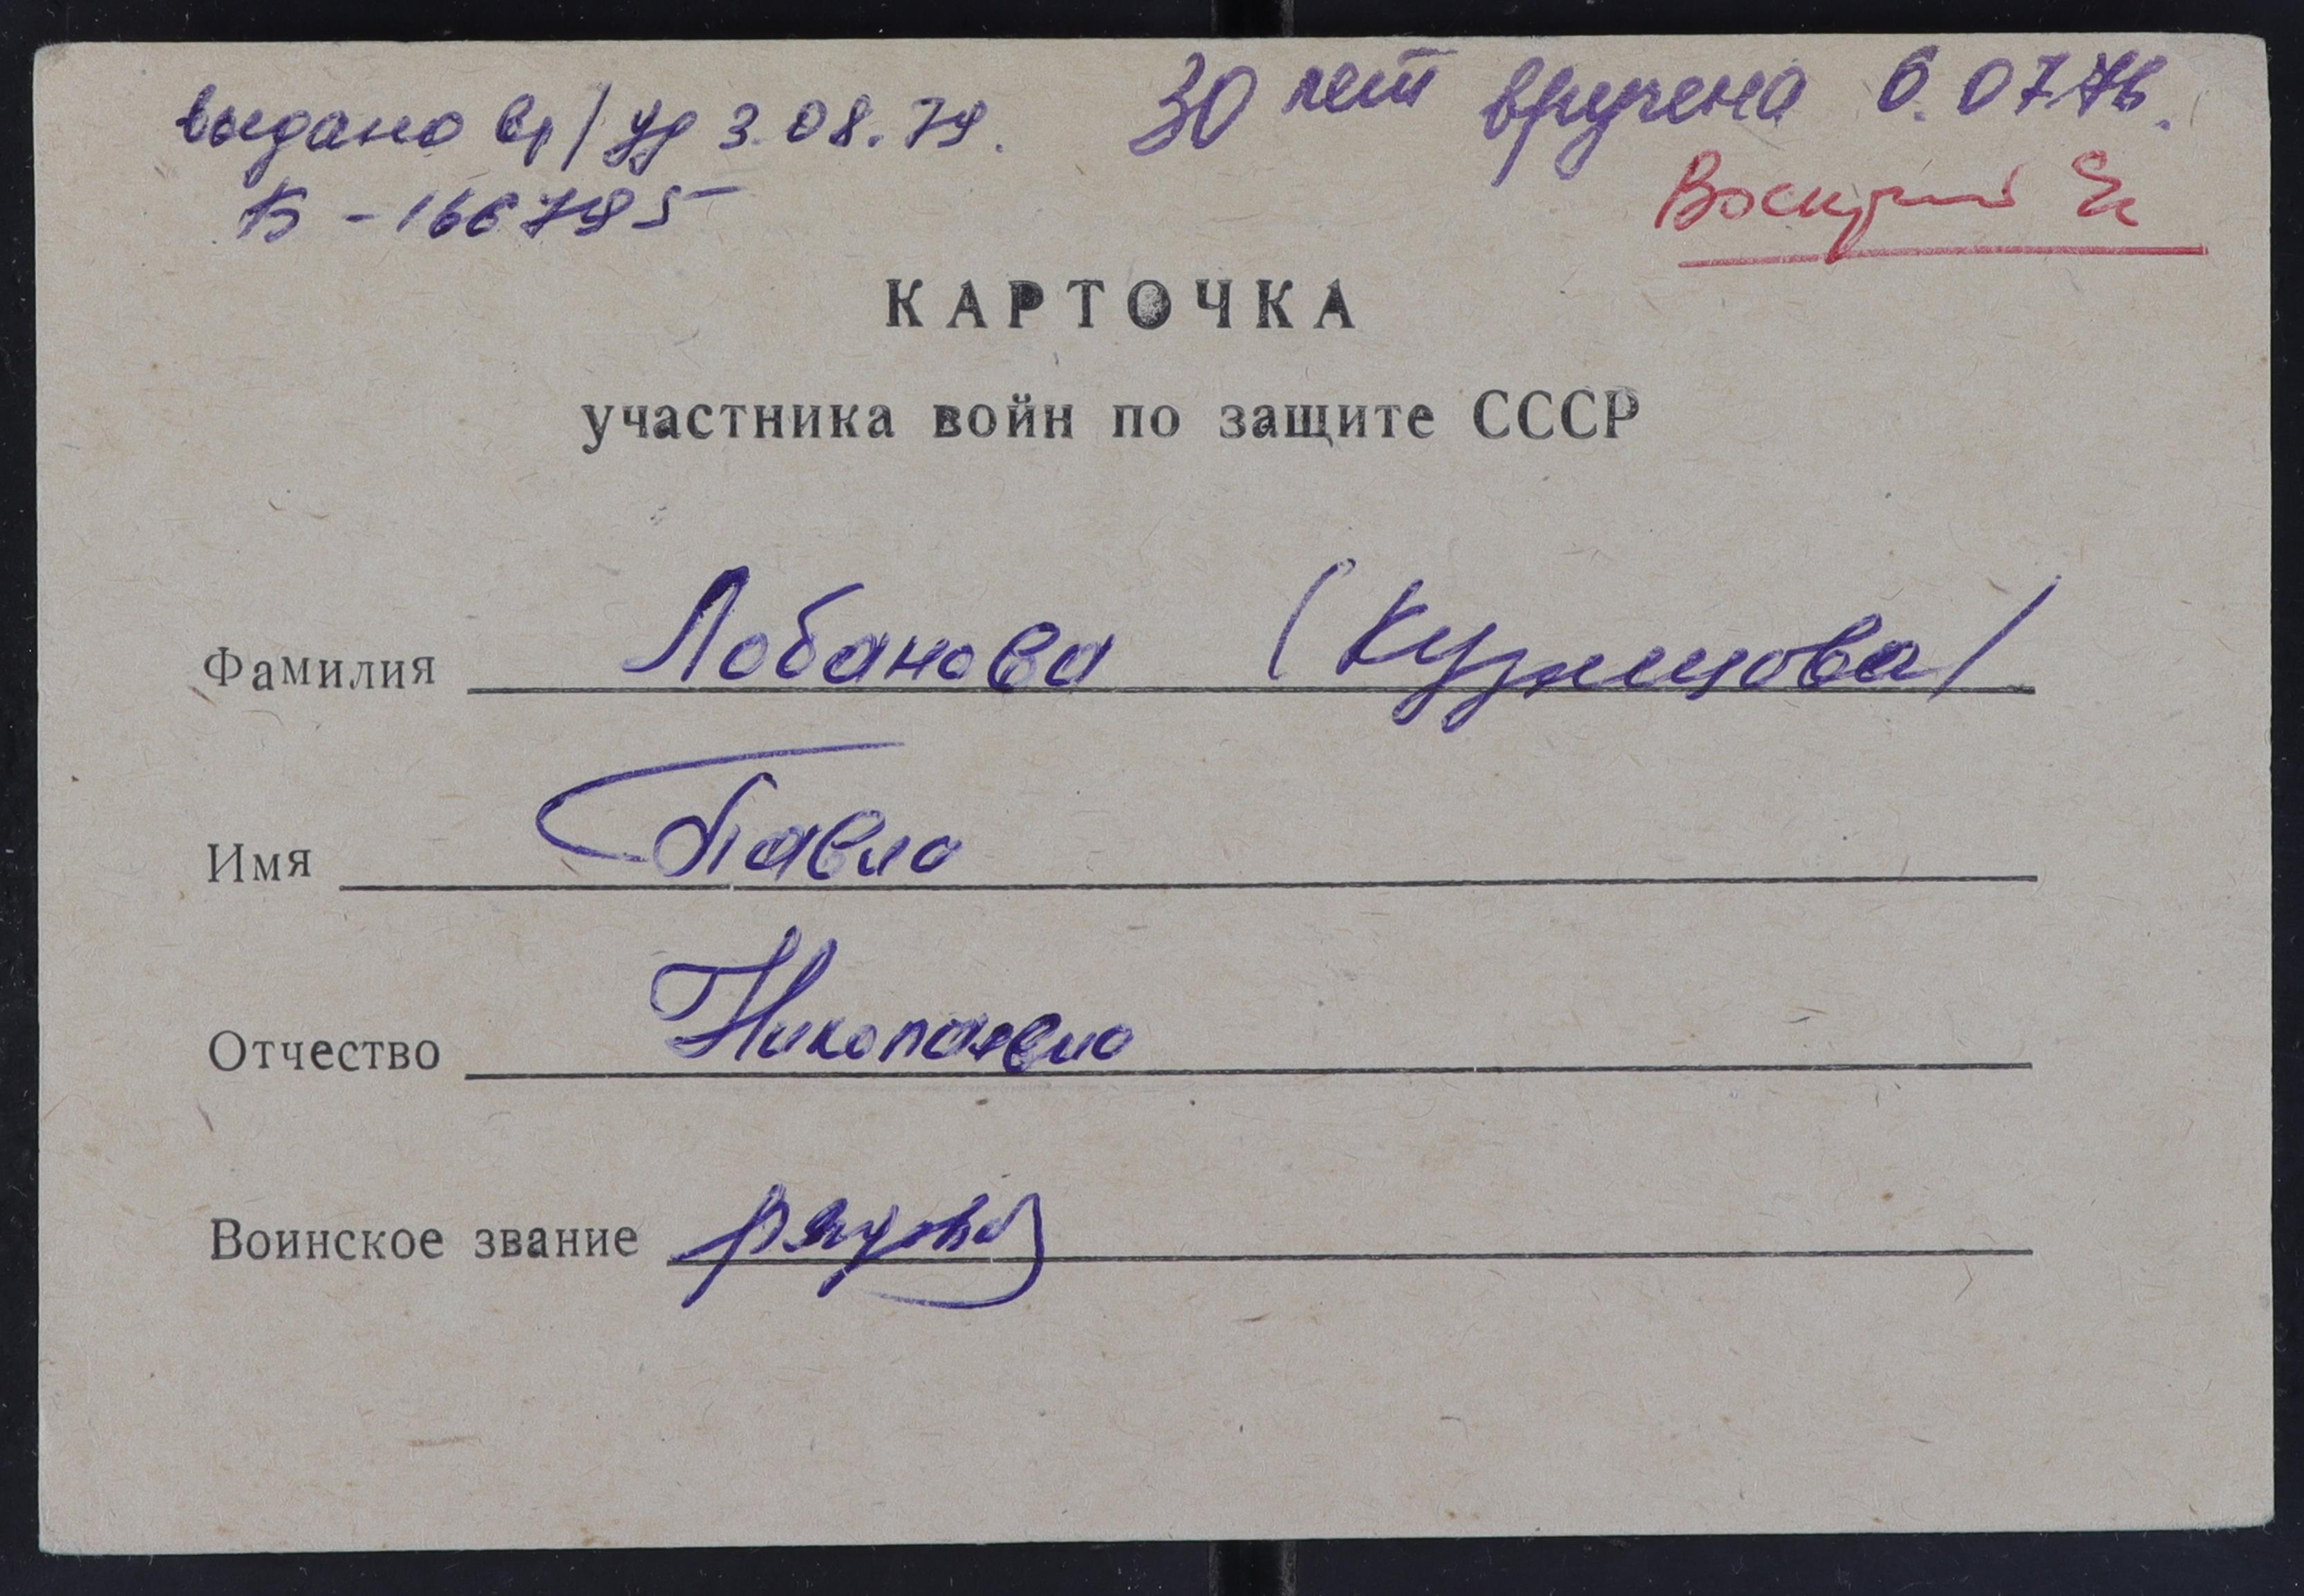 выдано вр/уд 3.08.79. 30 лет вручена 6.07.76.
Б-166795
КАРТОЧКА
участника войн по защите СССР
Фамилия Лобанова (Кузнецова)
Имя Павла
Отчество Николаевна
Воинское звание рядовой